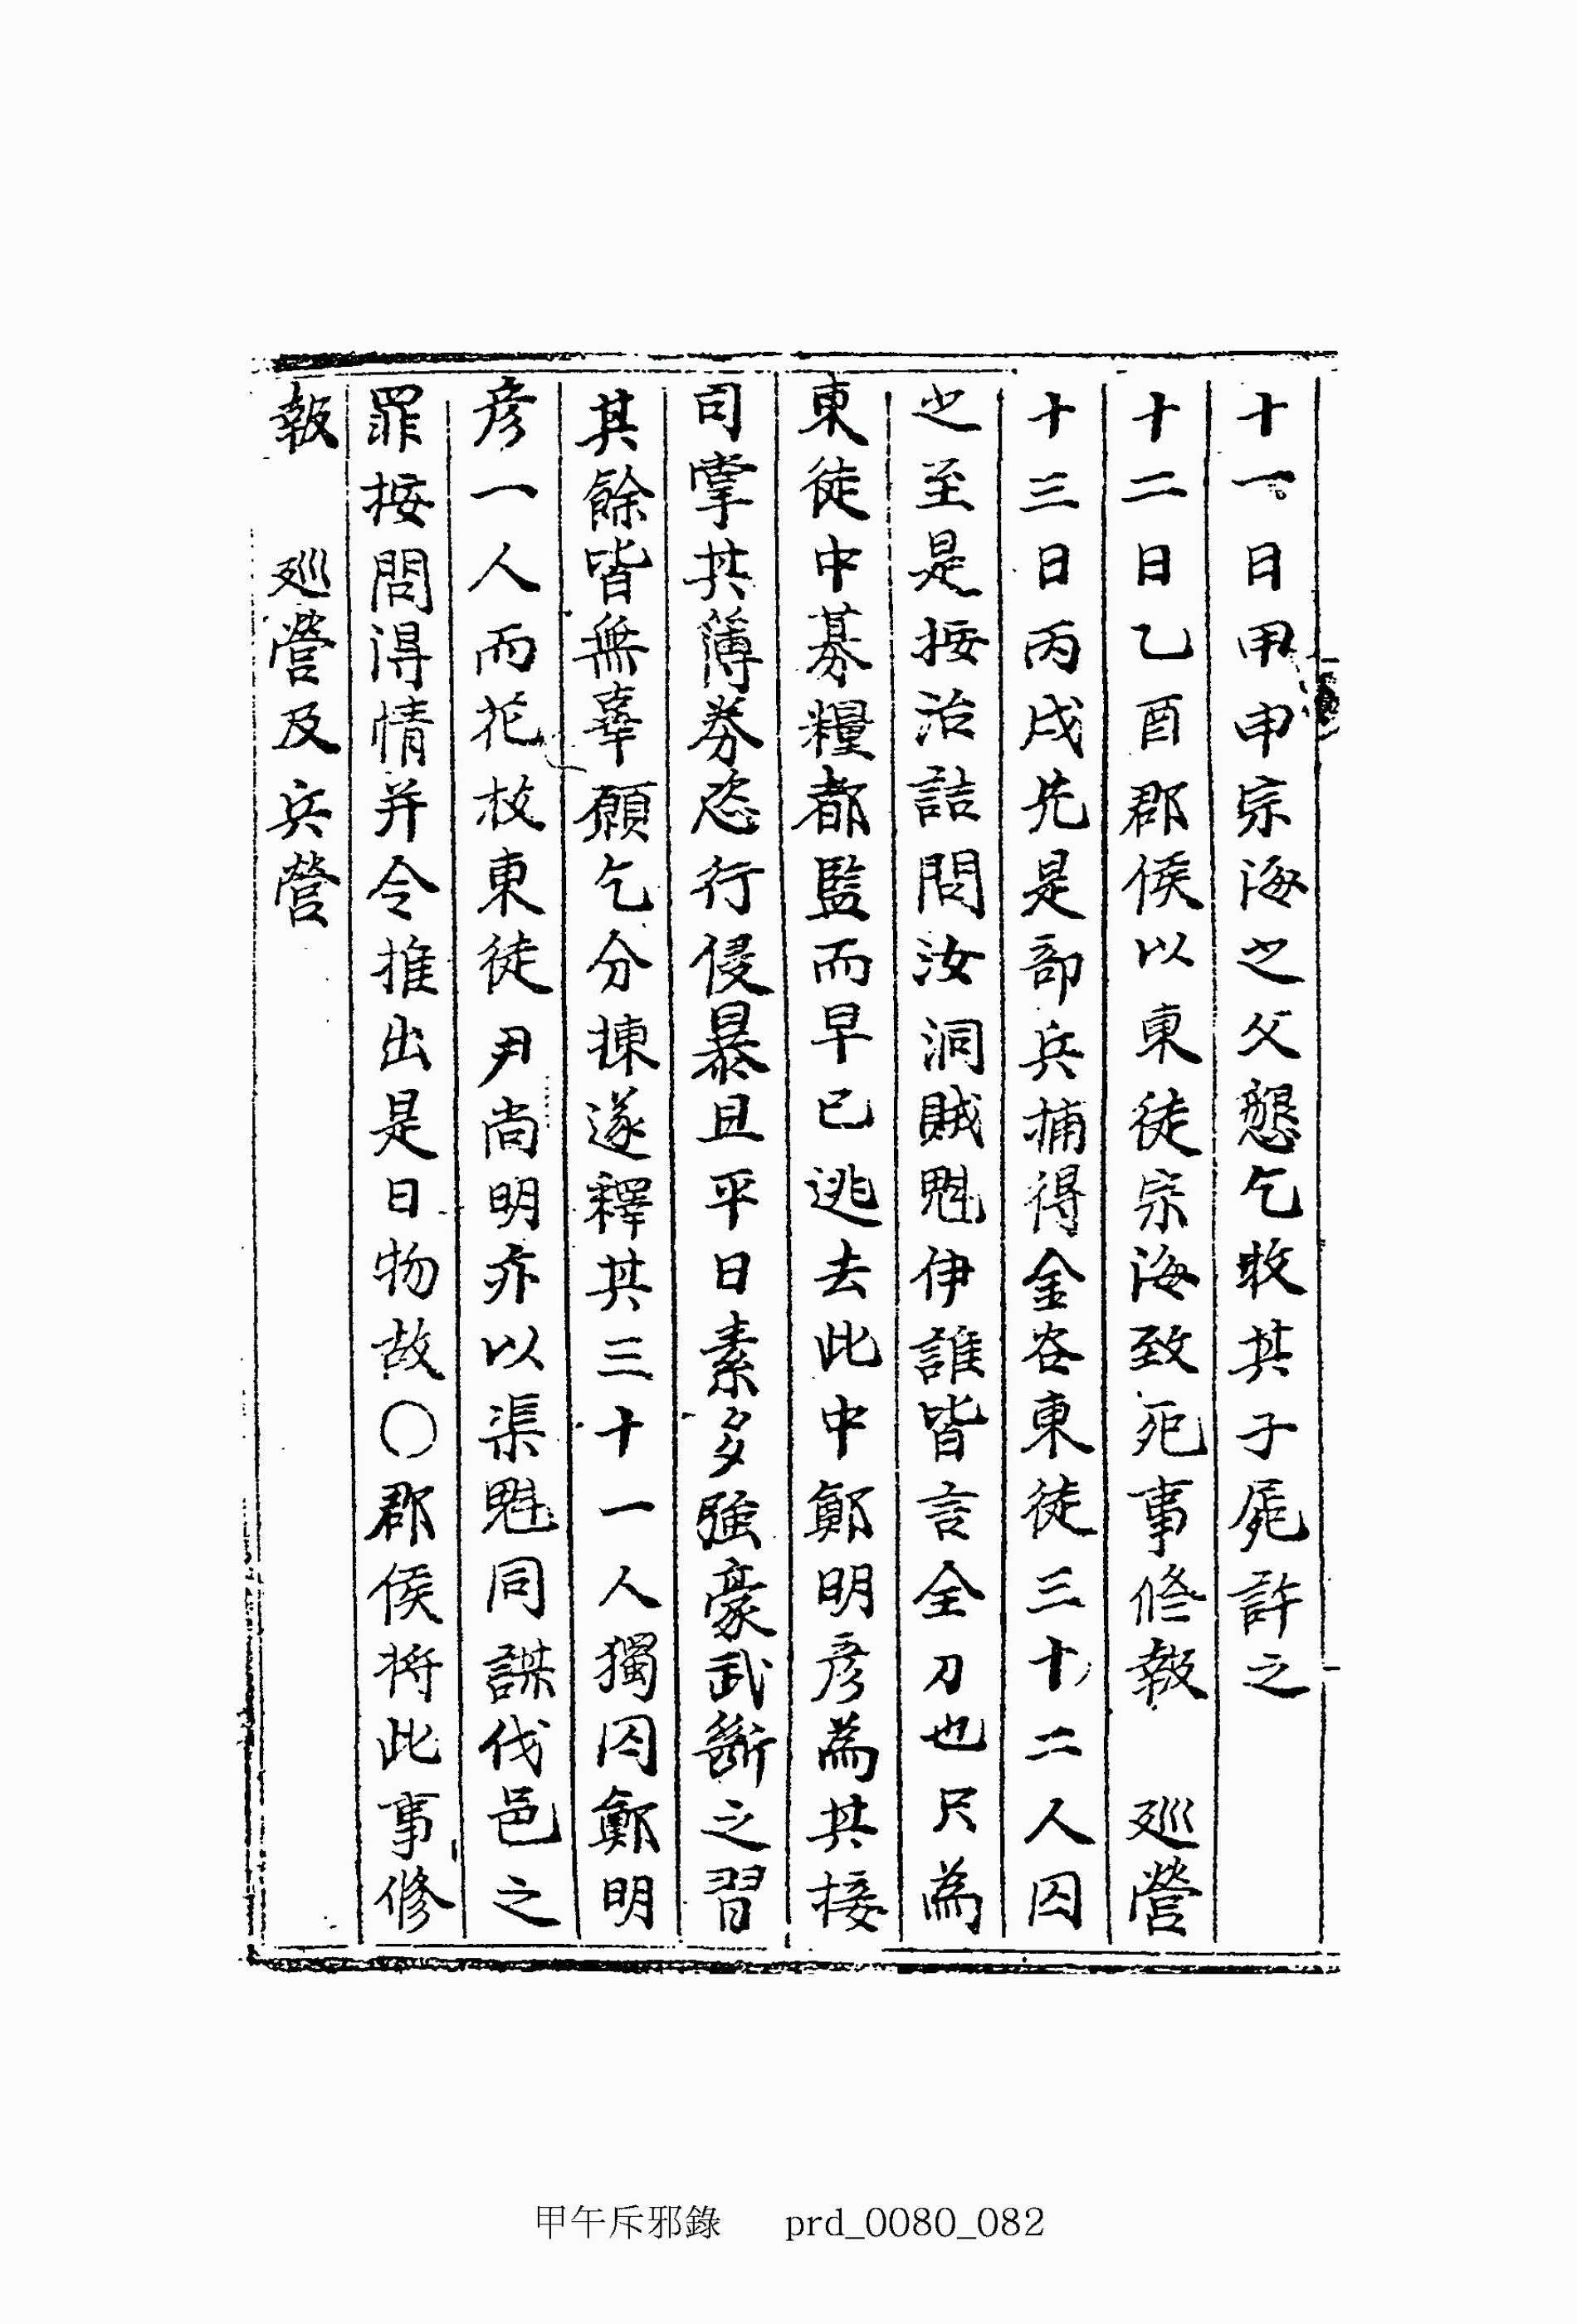 十一日甲申宗海之父懇乞收其子屍許之
十二日乙酉郡侯以東徒宗海致死事修報　廵營
十三日丙戌先是部兵捕得金谷東徒三十二人囚
之至是按治詰問汝洞賊魁伊誰皆言全刀也尺爲
東徒中募糧都監而早已逃去此中鄭明彦爲其接
司掌其簿券恣行侵暴且平日素多強豪武斷之習
其餘皆無辜願乞分揀遂釋其三十一人獨囚鄭明
彦一人而花枝東徒尹尙明亦以渠魁同謀伐邑之
罪按問得情并令推出是日物故〇郡侯將此事修
報　廵營及兵營
甲午斥邪錄　prd_0080_082